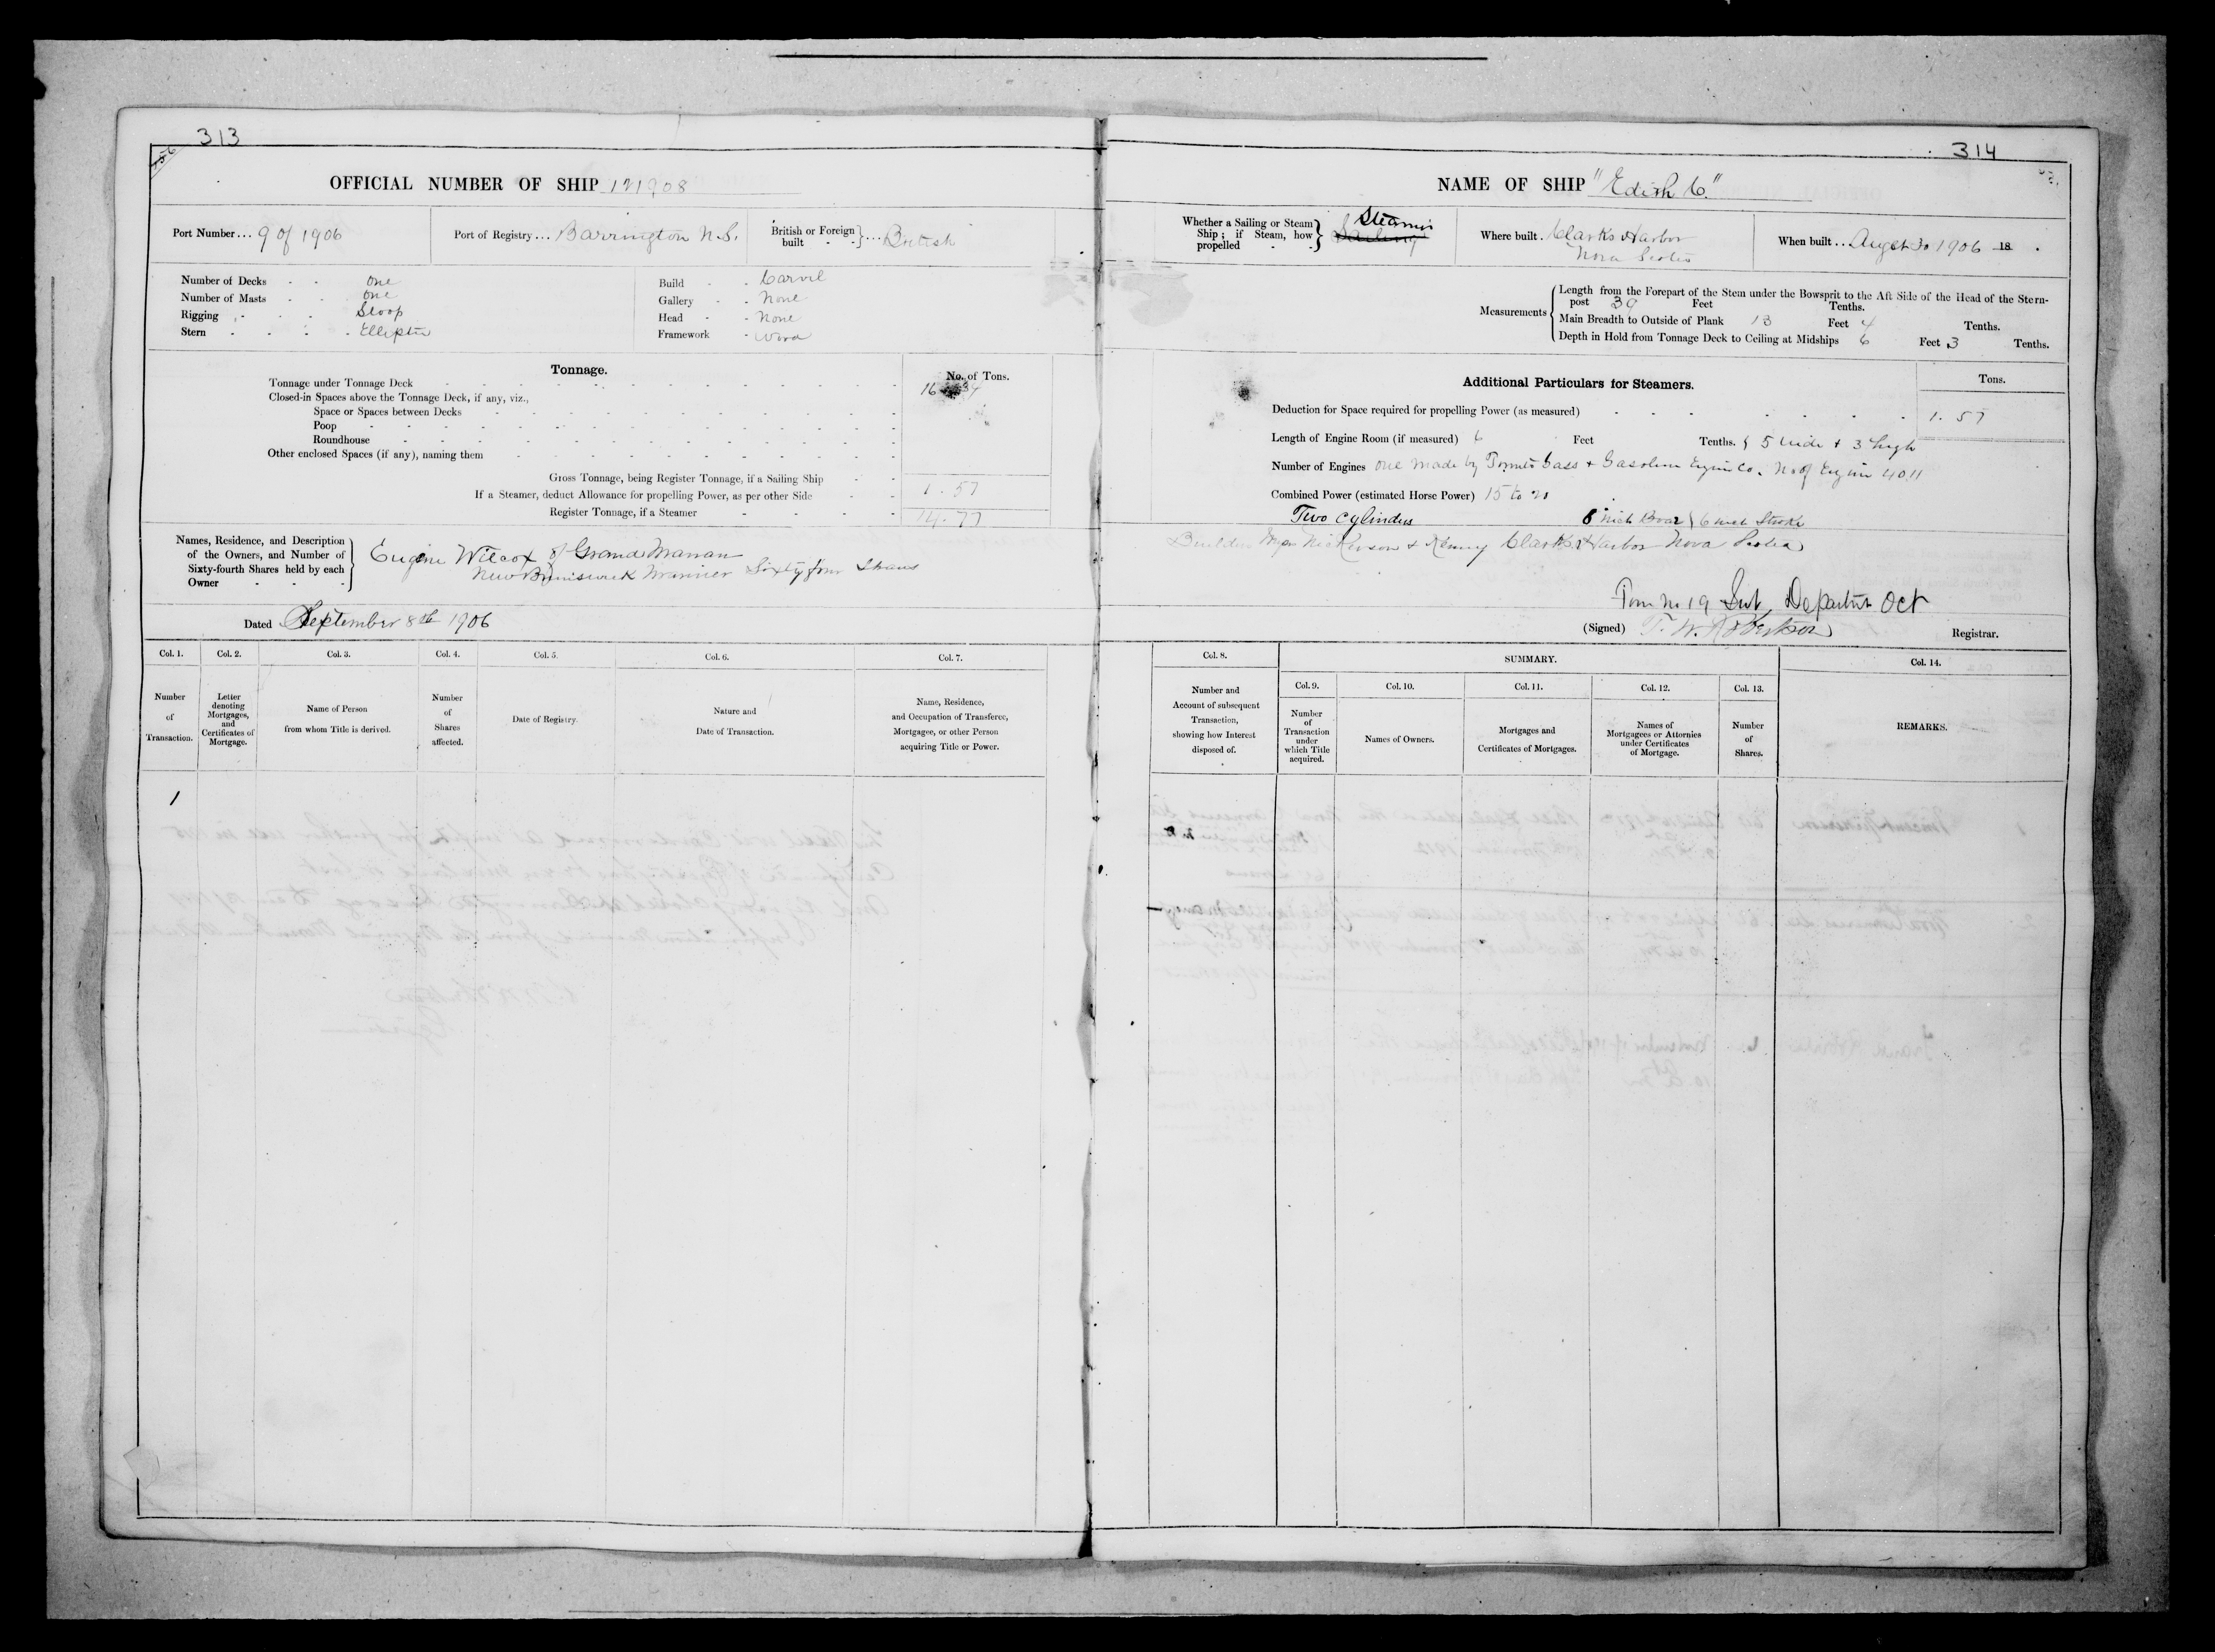 313
OFFICIAL NUMBER OF SHIP 121908
Port Number... 9 of 1906
Port of Registry... Barrington N.S.
British or Foreign built - - } .... British
Number of Decks - - One
Number of Masts - - One
Rigging - - - Sloop
Stern - - - - Elliptic
Build - - Carvel
Gallery - - None
Head - - None
Framework - Wood
Tonnage.
No. of Tons.
Tonnage under Tonnage Deck 16 34
Closed-in Spaces above the Tonnage Deck, if any, viz.,
Space or Spaces between Decks
Poop
Roundhouse
Other enclosed Spaces (if any), naming them
Gross Tonnage, being Register Tonnage, if a Sailing Ship
If a Steamer, deduct Allowance for propelling Power, as per other Side 1.57
Register Tonnage, if a Steamer 14.77
Names, Residence, and Description of the Owners, and Number of Sixty-fourth Shares held by each Owner - - - }
Eugene Wilcox of Grand Manan
New Brunswick Mariner Sixty four Shares
Dated September 8th 1906
Col. 1. Col. 2. Col. 3. Col. 4. Col. 5. Col. 6. Col. 7.
Number of Transaction.
Letter denoting Mortgages, and Certificates of Mortgage.
Name of Person from whom Title is derived.
Number of Shares affected.
Date of Registry.
Nature and Date of Transaction.
Name, Residence, and Occupation of Transferee, Mortgagee, or other Person acquiring Title or Power.
1
314
NAME OF SHIP "Edith C."
Whether a Sailing or Steam Ship; if Steam, how propelled - - } Sailing Steamer
Where built . Clarks Harbor
Nova Scotia
When built . . August 30 1906 18 .
Measurements
Length from the Forepart of the Stem under the Bowsprit to the Aft Side of the Head of the Stern-
post 39 Feet Tenths.
Main Breadth to Outside of Plank 13 Feet 4 Tenths.
Depth in Hold from Tonnage Deck to Ceiling at Midships 6 Feet 3 Tenths.
Additional Particulars for Steamers.
Tons.
Deduction for Space required for propelling Power (as measured) 1.57
Length of Engine Room (if measured) 6 Feet Tenths. 5 wide + 3 high
Number of Engines one made by Gass + Gasoline Engine Co. No of Engine 4011
Combined Power (estimated Horse Power) 15 to
Two Cylinders 6 inch Boar 6 inch Stroke
Builders Nickerson + Kenny Clarks Harbor Nova Scotia
No 19 Oct
(Signed) T. W. Robertson Registrar.
Col. 8.
Number and Account of subsequent Transaction, showing how Interest disposed of.
SUMMARY.
Col. 9. Col. 10. Col. 11. Col. 12. Col. 13.
Number of Transaction under which Title acquired.
Names of Owners.
Mortgages and Certificates of Mortgages.
Names of Mortgagees or Attornies under Certificates of Mortgage.
Number of Shares.
Col. 14.
REMARKS.